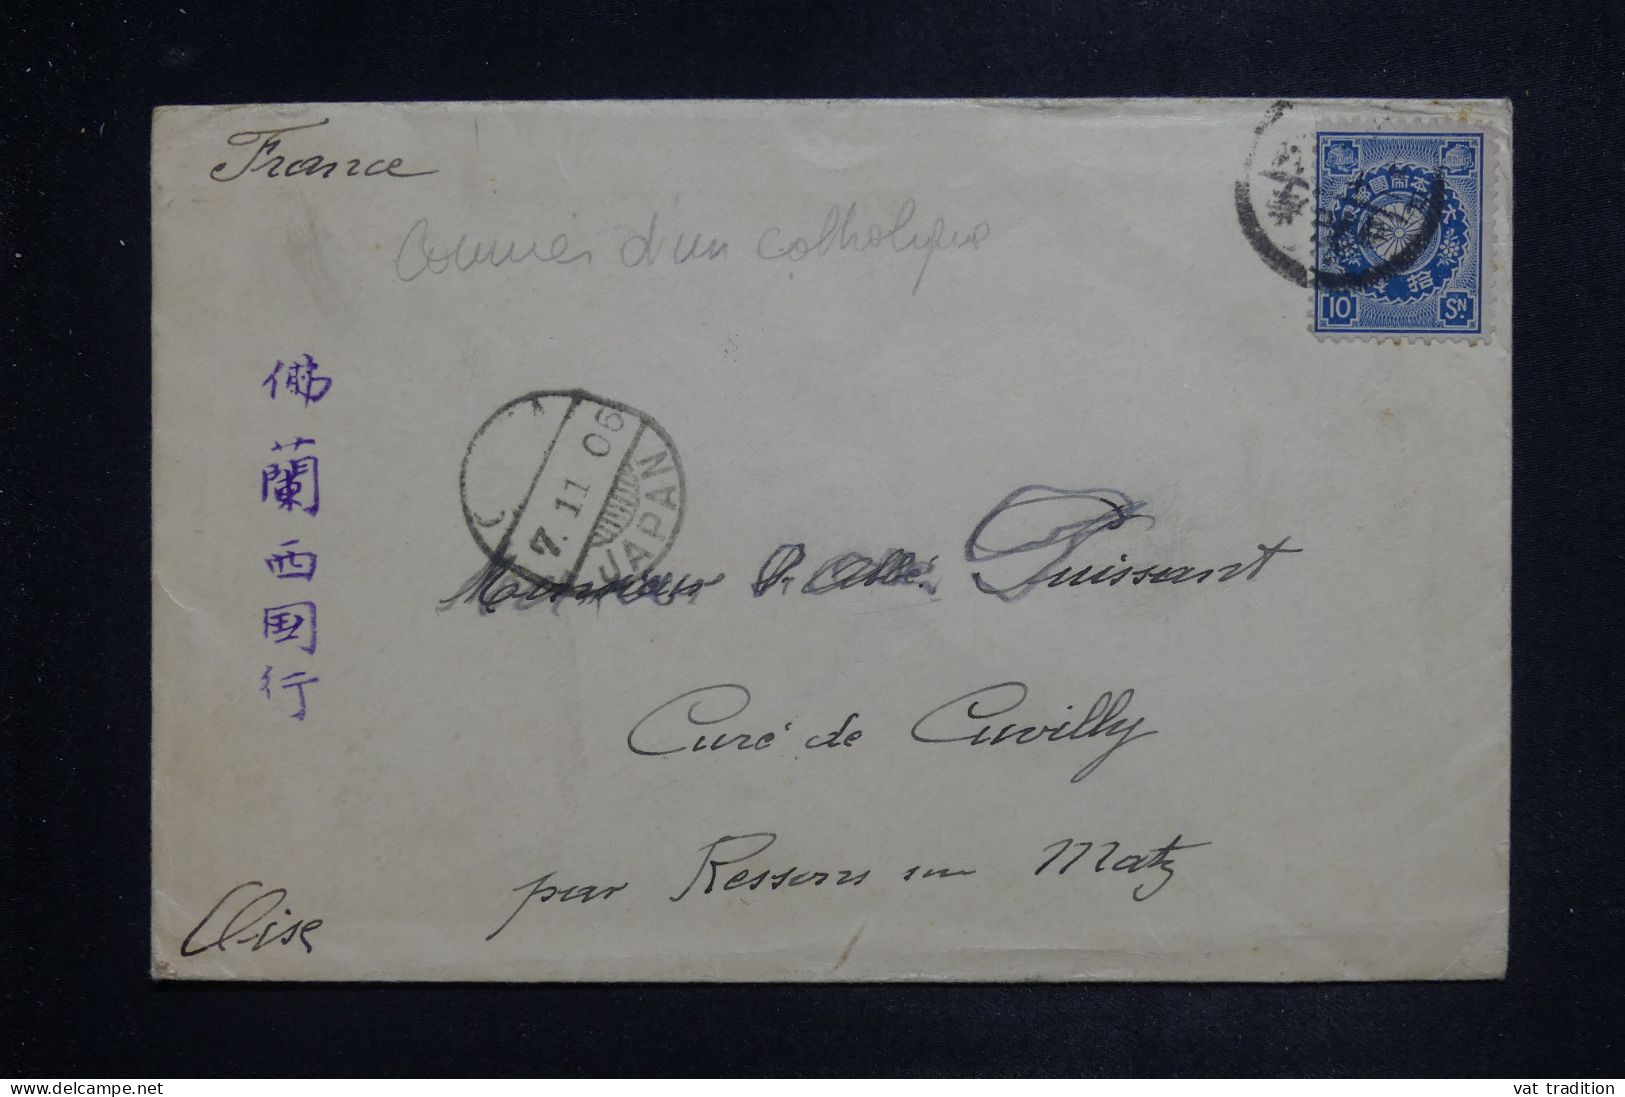 France
Courrier d'un catholique
佛蘭西国行
7.11 06
JAPAN
10 Sn.
Monsieur l'Abbé Puissant
Curé de Cuvilly
par Ressons sur Matz
Oise
delcampe.net
vat tradition